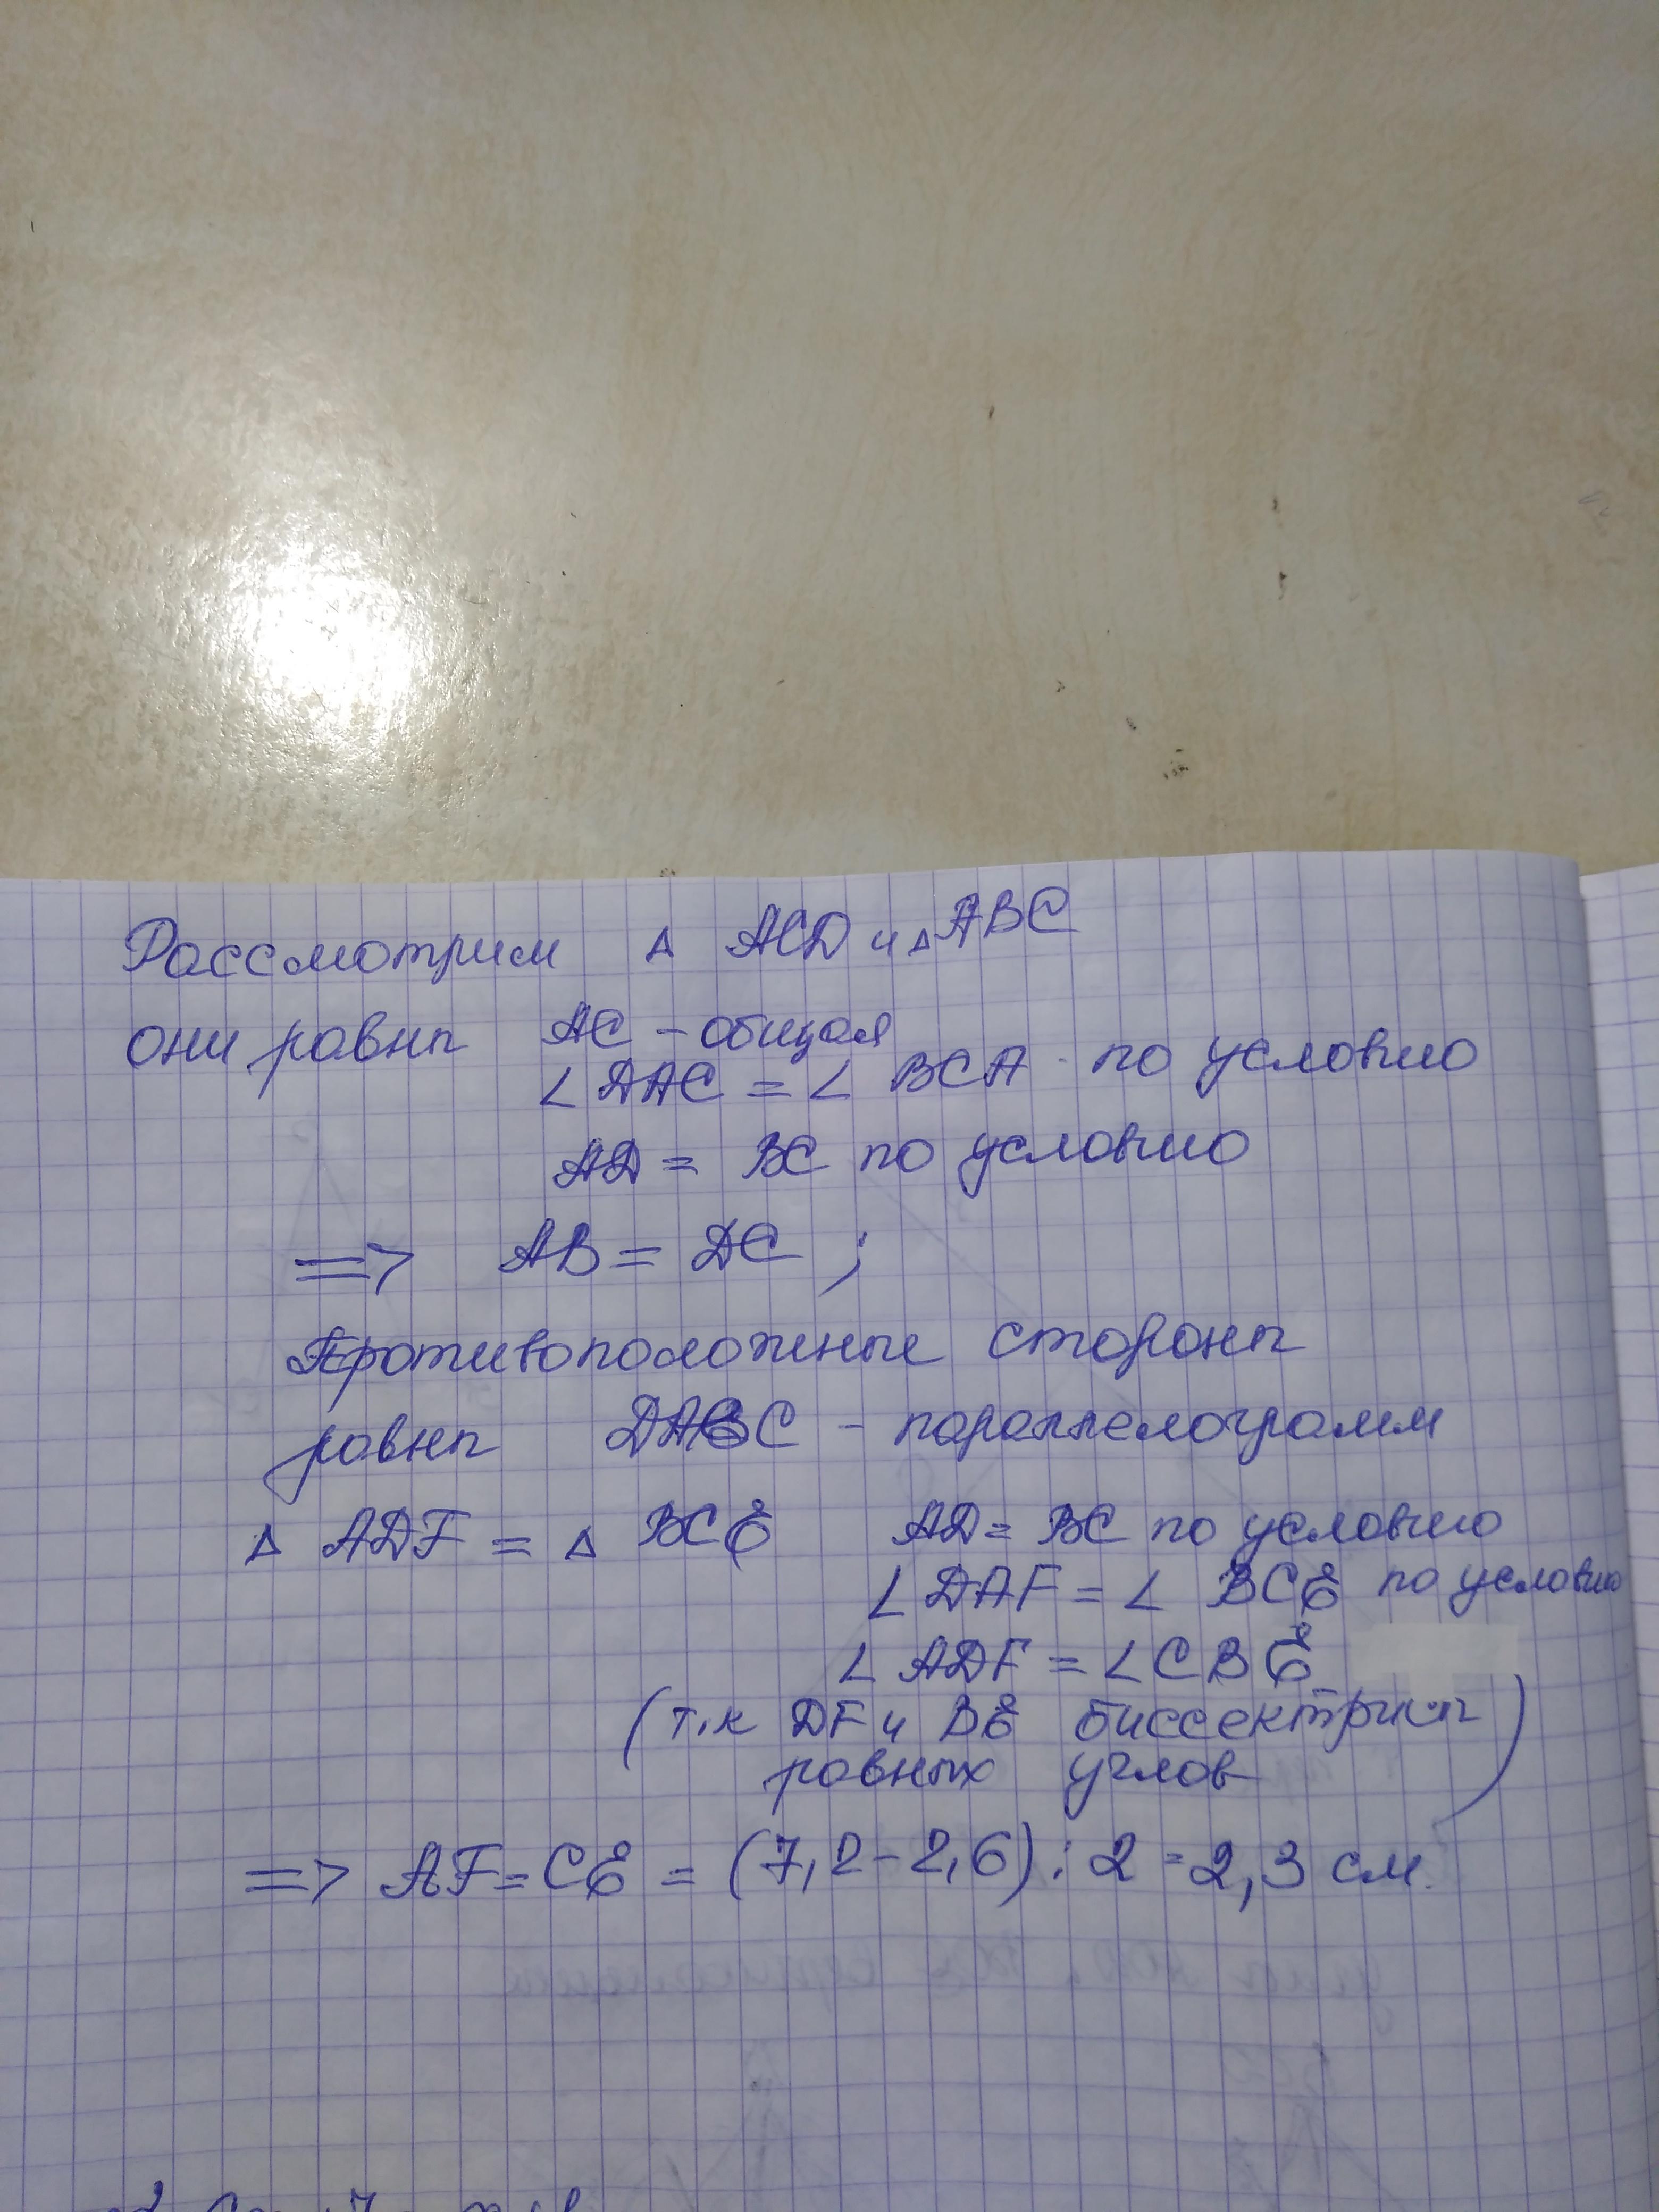 Рассмотрим △ ACD и △ABC
они равны AC - общая
∠ DAC = ∠ BCA по условию
AD = BC по условию
=> AB = DC ;
Противоположные стороны
равны DABC - параллелограмм
△ ADF = △ BCE AD = BC по условию
∠ DAF = ∠ BCE по условию
∠ ADF = ∠ CBE
(т.к DF и BE биссектрисы
равных углов)
=> AF = CE = (7,2 - 2,6) : 2 = 2,3 см.